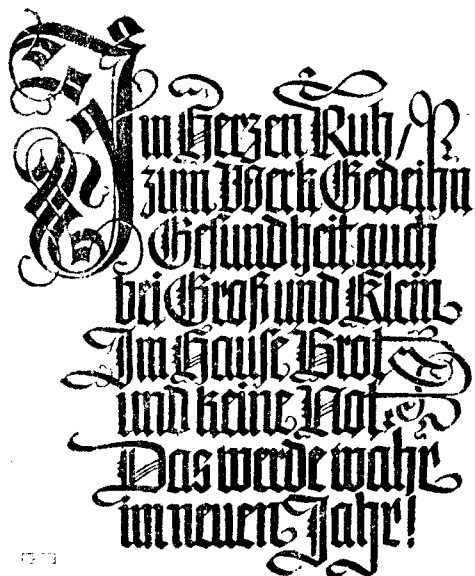 Im Herzen Ruh,
zum Werk Gedeihn
Gesundheit auch
bei Groß und Klein
Im Hause Brot
und keine Not
Das werde wahr
im neuen Jahr!